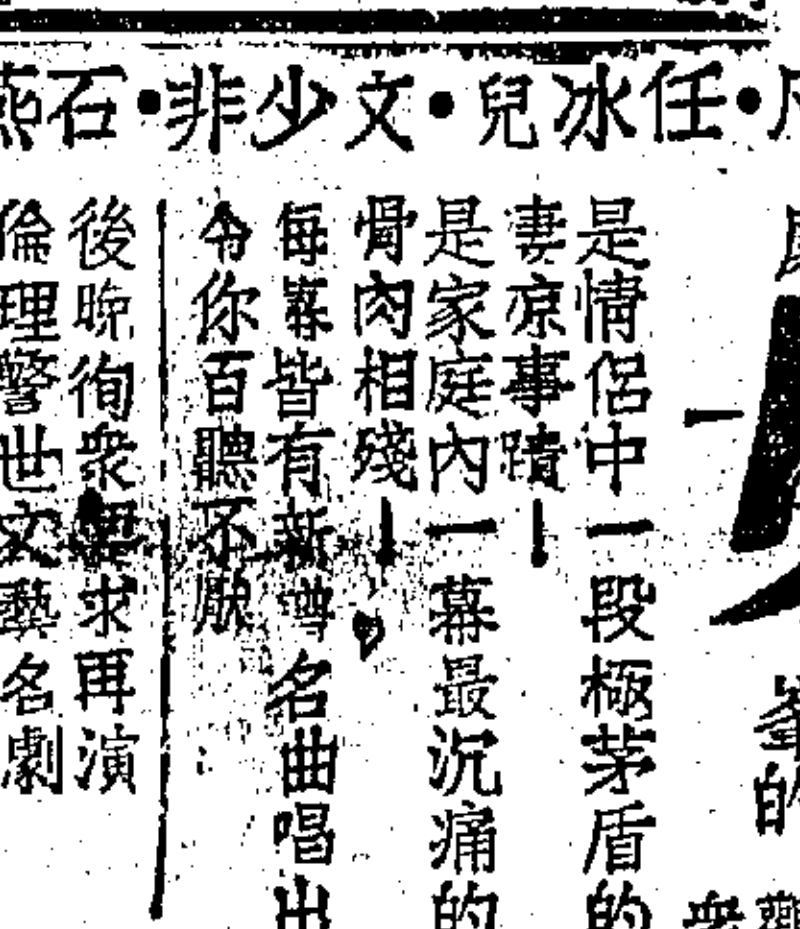 任冰兒・文少非・石燕
是情侶中一段極茅盾的
妻凉事蹟！
是家庭內一幕最沉痛的
骨肉相殘！
每套皆有新噂名曲唱出
令你百聽不厭
後晚徇衆要求再演
倫理警世文藝名劇